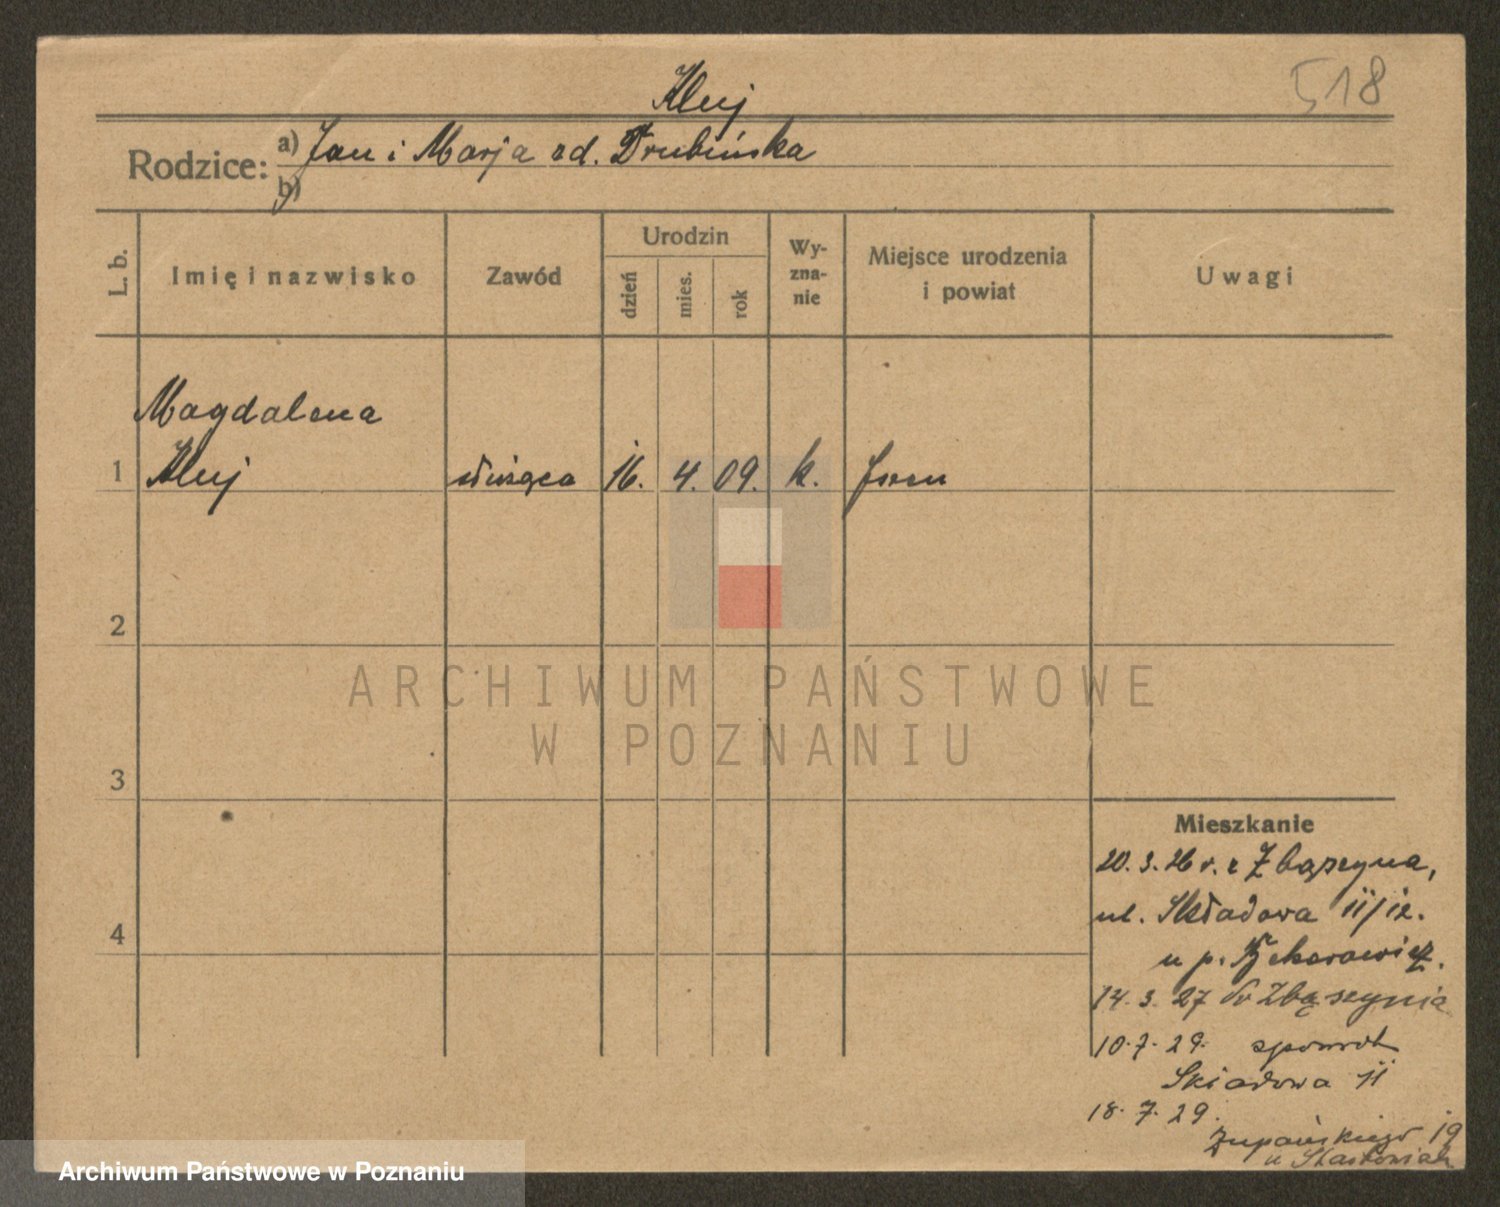 518
Kluj
Rodzice: a) Jan i Marja zd. Drubińska
b)
L. b.
Imię i nazwisko
Zawód
Urodzin
dzień
mies.
rok
Wy-
zna-
nie
Miejsce urodzenia
i powiat
Uwagi
Magdalena
1 Kluj służąca 16. 4. 09. k. Jrem
2
3
4
ARCHIWUM PAŃSTWOWE
W POZNANIU
Mieszkanie
20.3.26 r. z Zbąszyna,
ul. Składowa 11/12.
u p.
14.3.27 do Zbąszynia
10.7.29. zpowrot
Składowa 11
18.7.29.
Żupańskiego 19
u
Archiwum Państwowe w Poznaniu